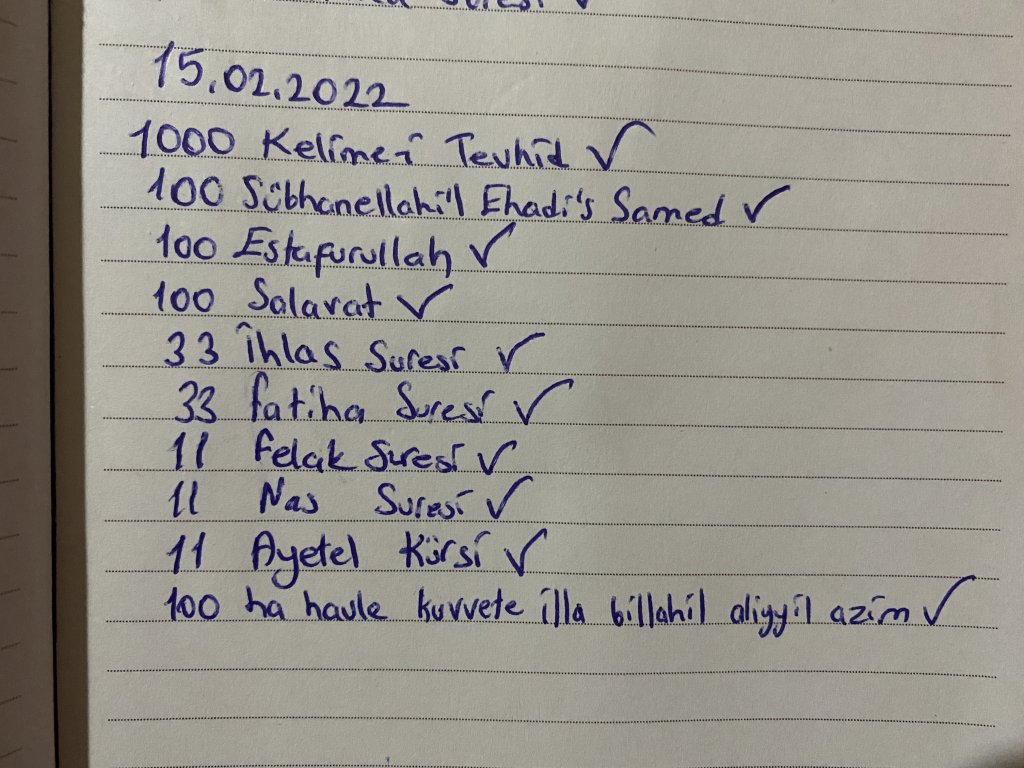 Suresi ✓
15.02.2022
1000 Kelime-i Tevhid ✓
100 Sübhanellahi'l Ehadi's Samed ✓
100 Estafurullah ✓
100 Salavat ✓
33 İhlas Suresi ✓
33 Fatiha Suresi ✓
11 Felak Suresi ✓
11 Nas Suresi ✓
11 Ayetel Kürsi ✓
100 ha havle kuvvete illa billahil aliyyil azim ✓